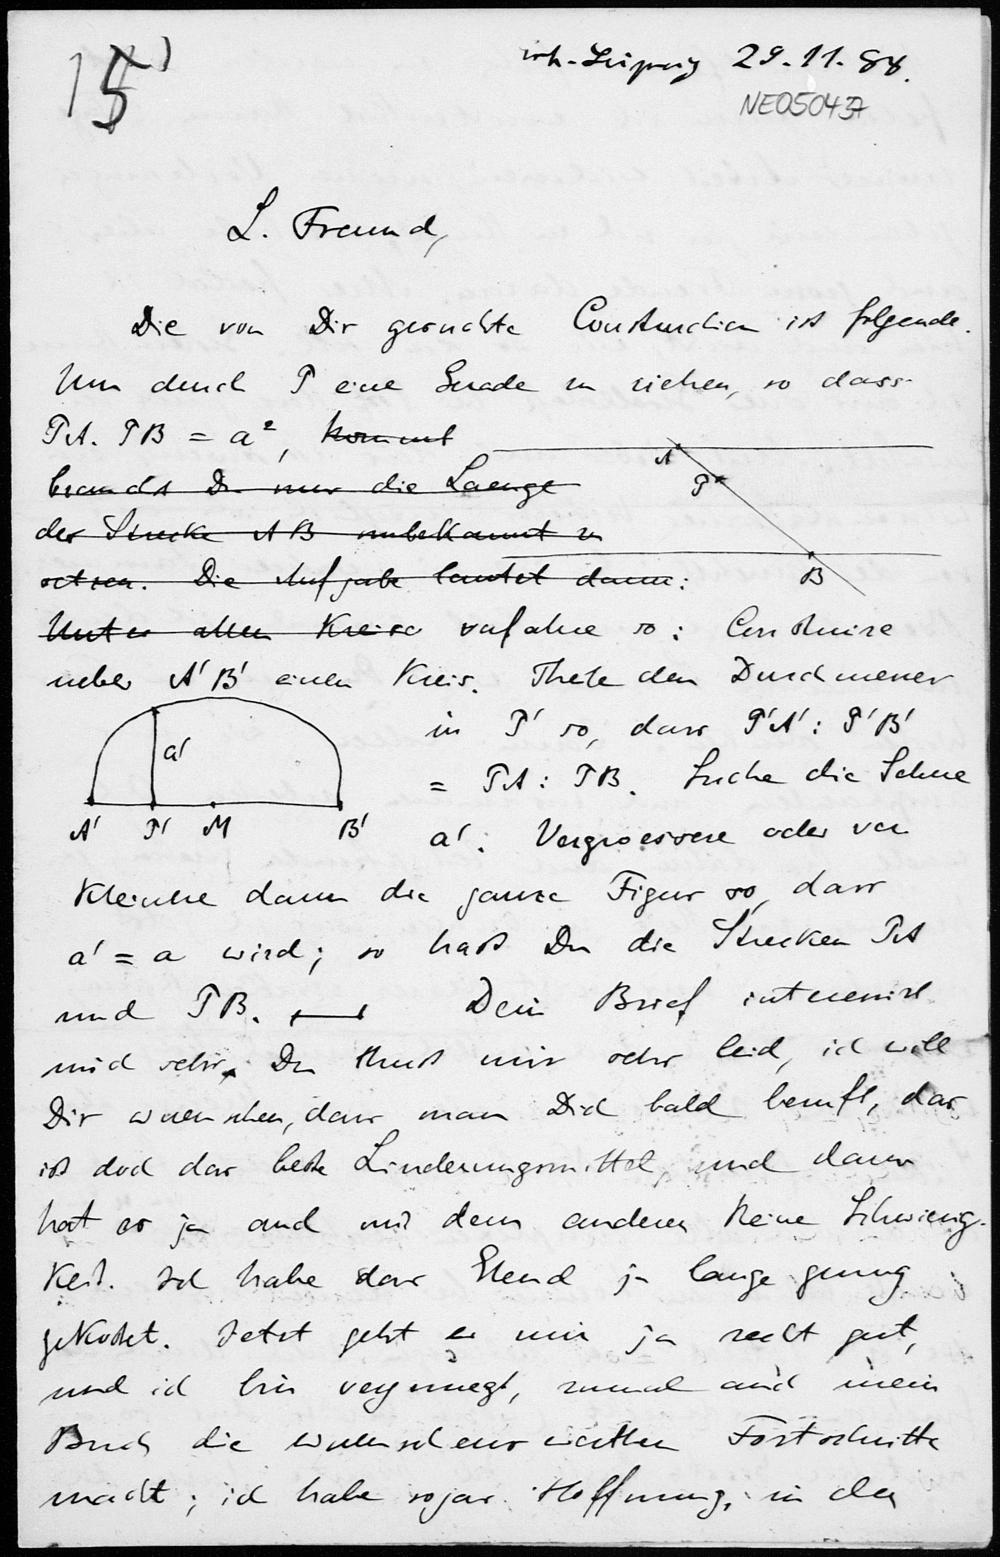 15
Leipzig 29.11.88.
NE050437
L. Freund,
Die von Dir gesuchte Construction ist folgende.
Um durch P eine Gerade zu ziehen, so dass
PA. PB = a², kommt
brauchst Du nur die Laenge
der Strecke AB unbekannt zu
setzen. Die Aufgabe lautet dann:
Unter allen Kreise verfahre so: Construire
ueber A'B' einen Kreis. Theile den Durchmesser
in P' so, dass P'A' : P'B'
= PA : PB. Suche die Sehne
a'. Vergroessere oder ver
kleinere dann die ganze Figur so, dass
a' = a wird; so hast Du die Strecken PA
und PB. Dein Brief interessirt
mich sehr. Du thust mir sehr leid, ich will
Dir wuenschen, dass man Dich bald beruft, das
ist doch das beste Linderungsmittel, und dann
hat es ja auch mit dem anderen keine Schwierig-
keit. Ich habe das Elend ja lange genug
gekostet. Jetzt geht es mir ja recht gut,
und ich bin vergnuegt, zumal auch mein
Buch die wuenschenswerthen Fortschritte
macht; ich habe sogar Hoffnung, in den
A
P
B
a'
A' P' M B'